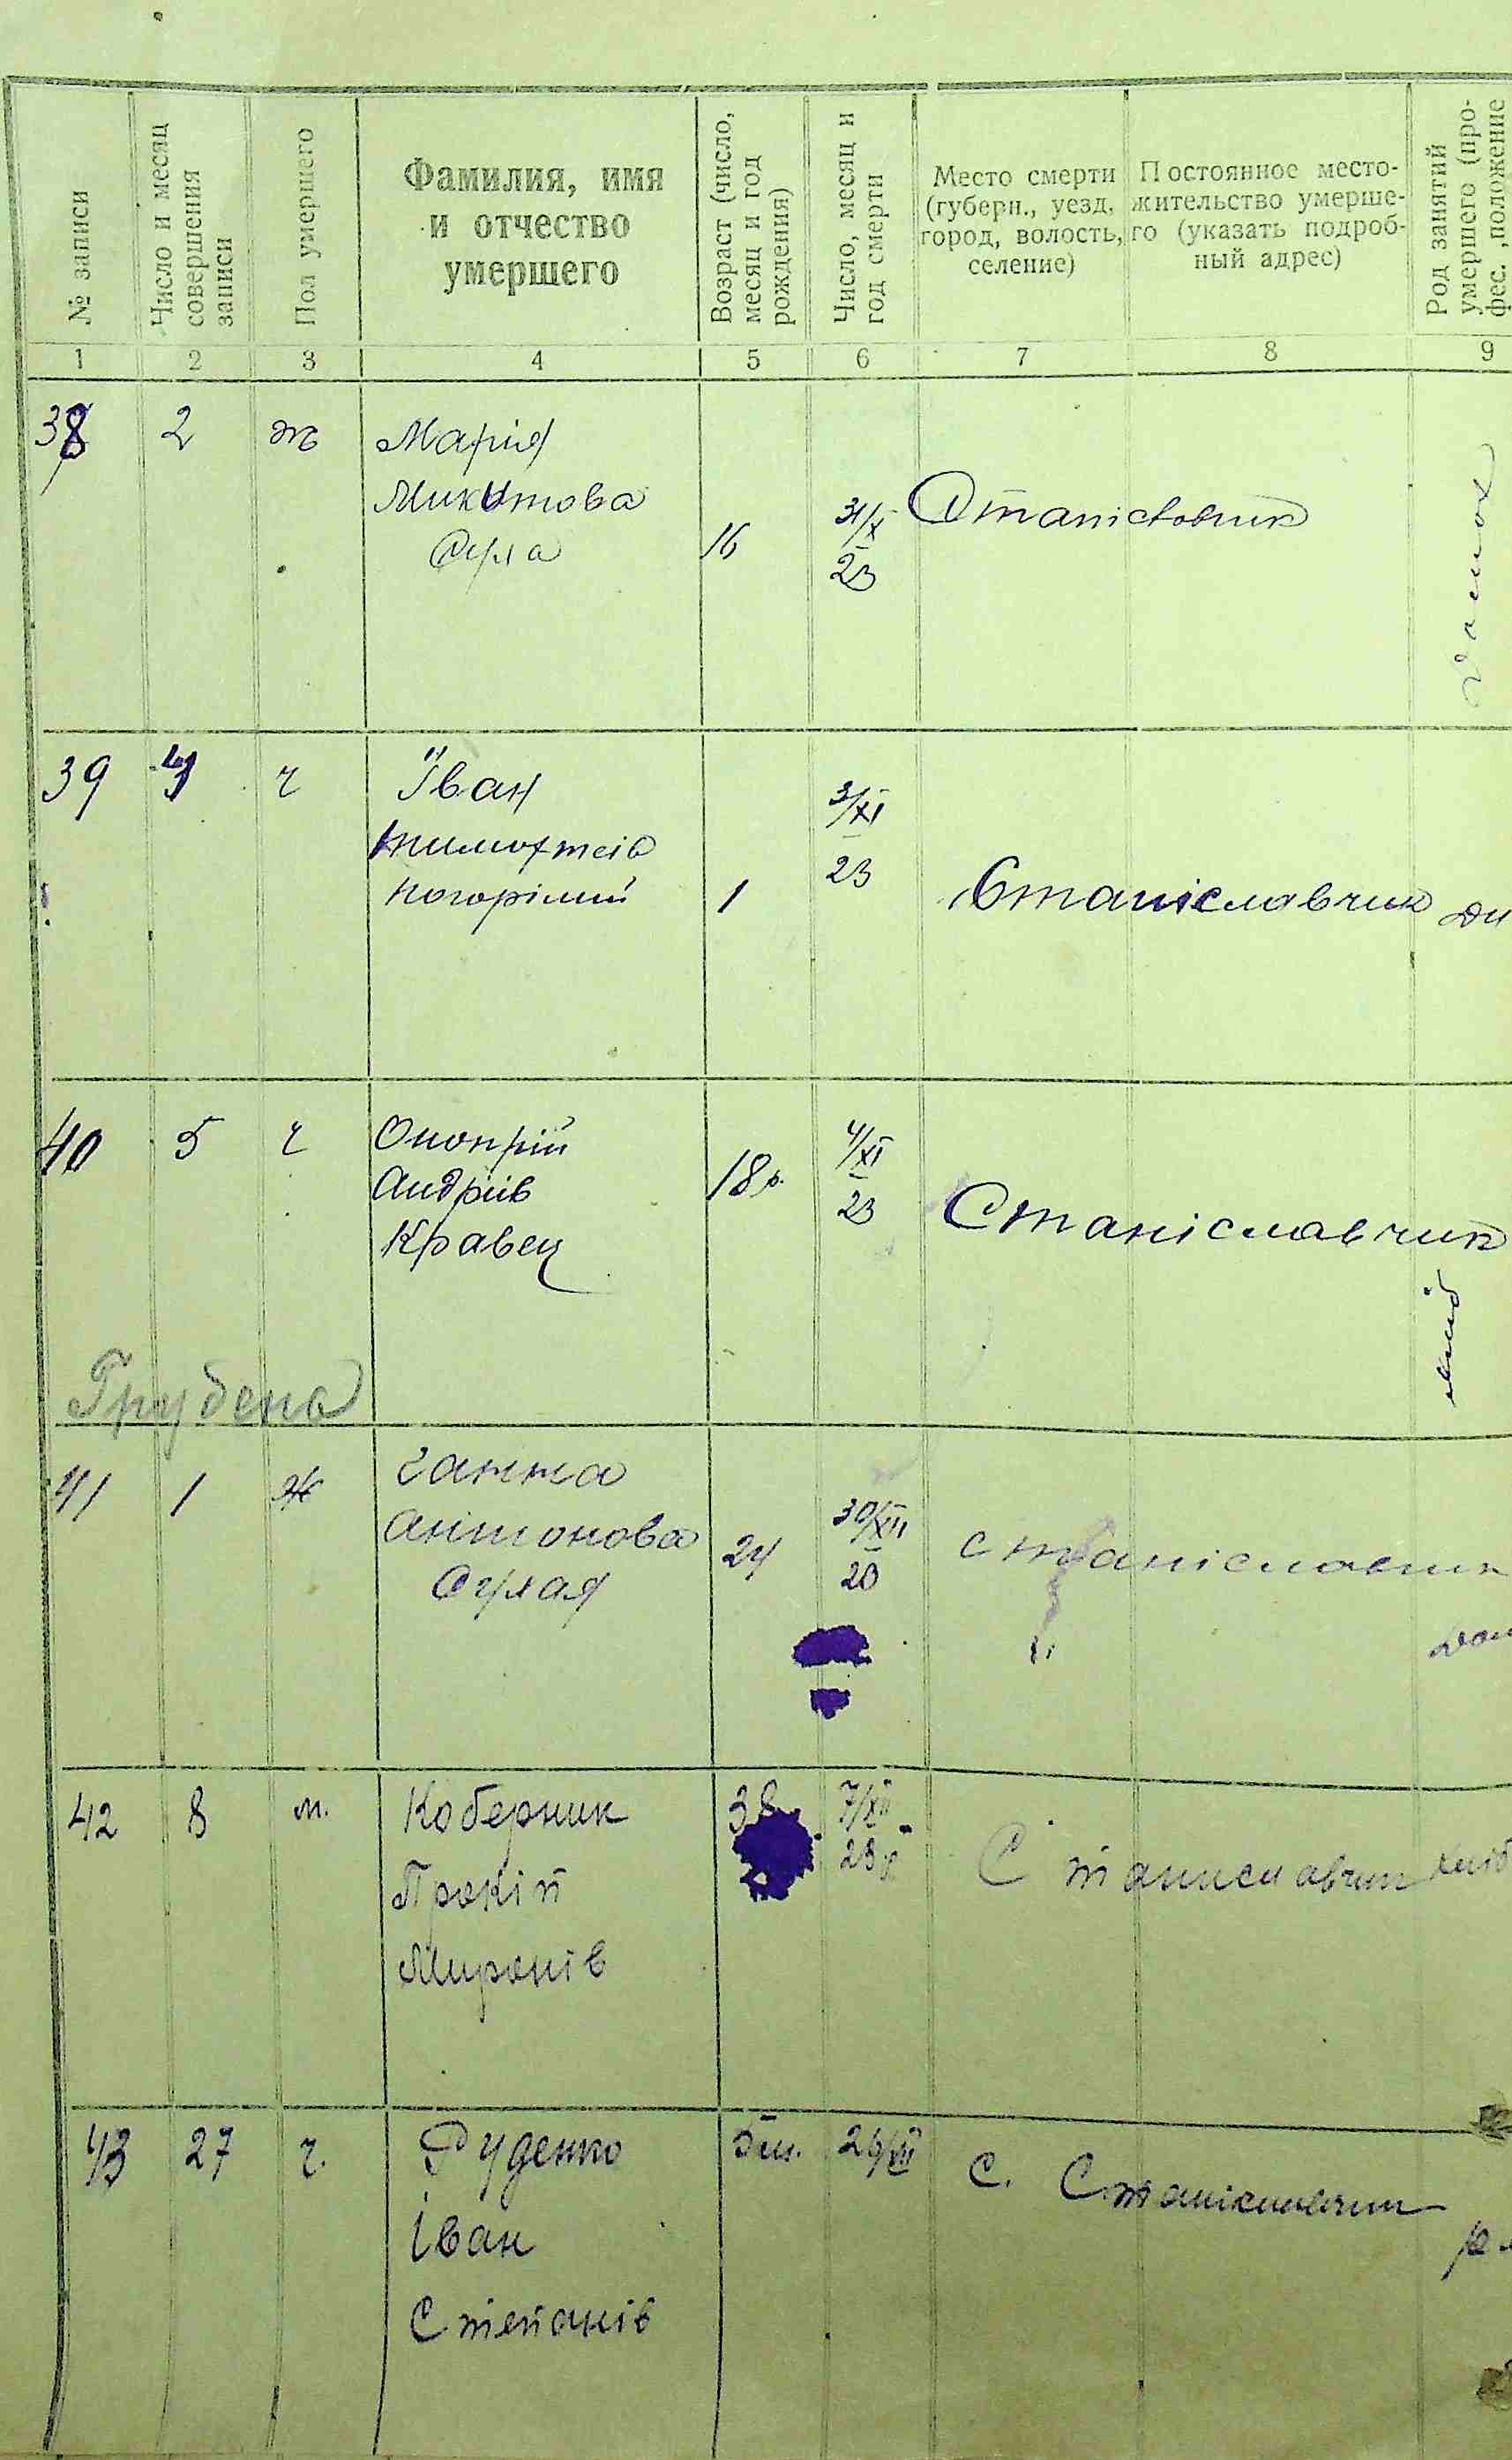 № записи
Число и месяц
совершения
записи
Пол умершего
Фамилия, имя
и отчество
умершего
Возраст (число,
месяц и год
рождения)
Число, месяц и
год смерти
Место смерти
(губерн., уезд,
город, волость,
селение)
Постоянное место-
жительство умерше-
го (указать подроб-
ный адрес)
Род занятий
умершего (про-
фес., положение
1 2 3 4 5 6 7 8 9
38 2 ж Марія
Микитова
Суха
16 31/X
23
39 4 ч Іван
тимофтеів
погорілий
1 3/XI
23
Станіславчик ди
40 5 ч Онопрій
Андріів
Кравец
18 р. 4/XI
23
Станіславчик
Грудень
41 1 ж Ганна
Антонова
Сухая
24 30/XII
23
Станіславчик
42 8 м. Коберник
Прокіп
Миронів
38 7/XII
23 р
Станиславчик хліб
43 27 ч. Руденко
Іван
Степанів
26/XII
С. Станіславчик